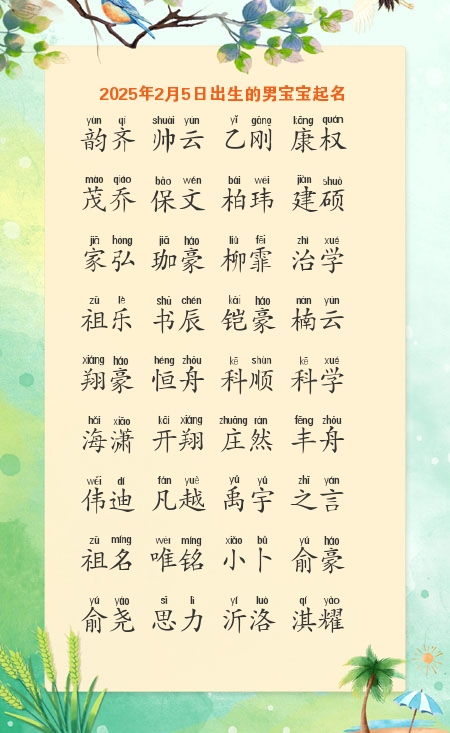 2025年2月5日出生的男宝宝起名
yùn qí shuài yún yǐ gāng kāng quán
韵齐 帅云 乙刚 康权
mào qiáo bǎo wén bǎi wěi jiàn shuò
茂乔 保文 柏玮 建硕
jiā hóng jiā háo liǔ fēi zhì xué
家弘 珈豪 柳霏 治学
zǔ lè shū chén kǎi háo nán yún
祖乐 书辰 铠豪 楠云
xiáng háo héng zhōu kē shùn kē xué
翔豪 恒舟 科顺 科学
hǎi xiāo kāi xiáng zhuāng rán fēng zhōu
海潇 开翔 庄然 丰舟
wěi dí fán yuè yǔ yǔ zhī yán
伟迪 凡越 禹宇 之言
zǔ míng wéi míng xiǎo bǔ yú háo
祖名 唯铭 小卜 俞豪
yú yáo sī lì yí luò qí yào
俞尧 思力 沂洛 淇耀